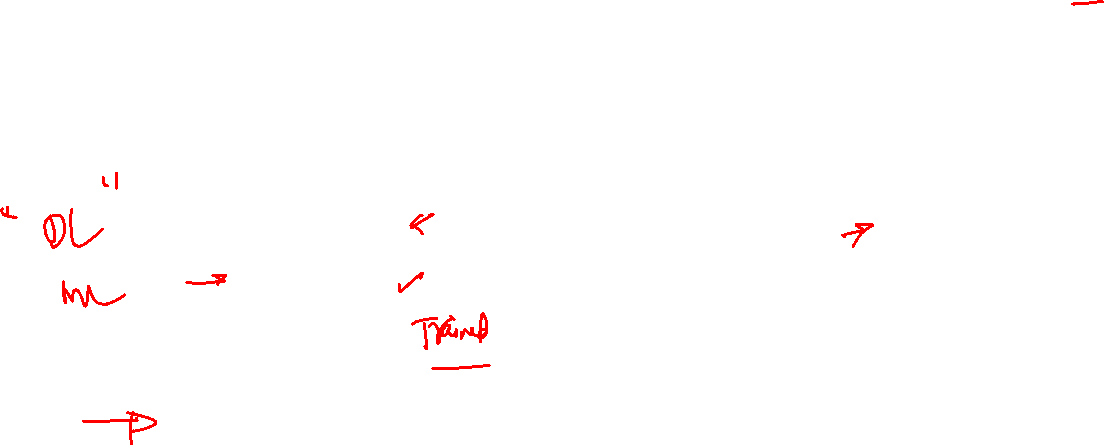 "DL"
ML
Trained